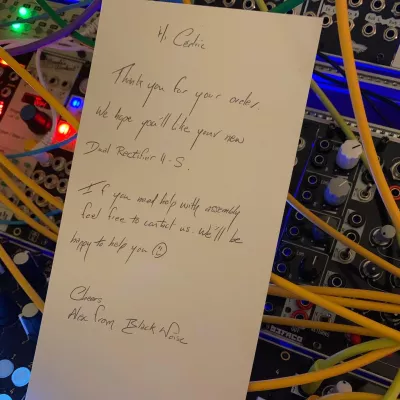 Hi Cedric
Thank you for your order.
We hope you'll like your new
Dual Rectifier 4-S.
If you need help with assembly
feel free to contact us. We'll be
happy to help you ☺
Cheers
Alex from Black Noise
BEFACO